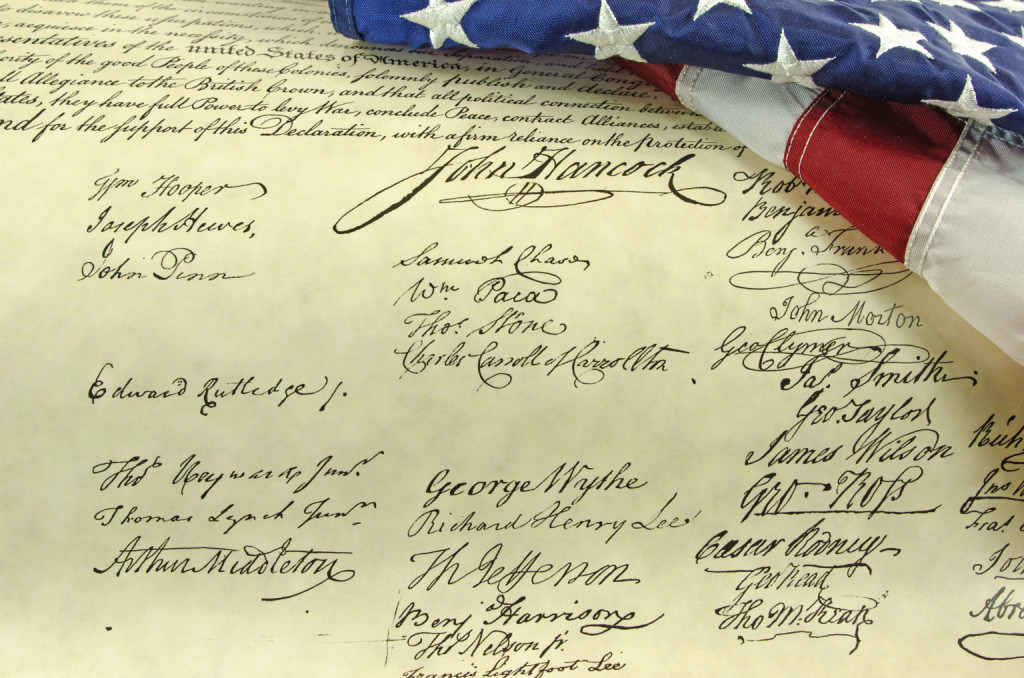 to disavow these usurpations, which
acquiesce in the necessity, which denounces our Separation, and
esentatives of the united States of America, in General Cong
ority of the good People of these Colonies, solemnly publish and declare,
ll Allegiance to the British Crown, and that all political connection between
tates, they have full Power to levy War, conclude Peace, contract Alliances, establ
nd for the support of this Declaration, with a firm reliance on the Protection of
John Hancock
Wm Hooper
Joseph Hewes,
John Penn
Edward Rutledge /.
Thos Heyward Junr.
Thomas Lynch Junr.
Arthur Middleton
Samuel Chase
Wm. Paca
Thos. Stone
Charles Carroll of Carrollton
George Wythe
Richard Henry Lee
Th Jefferson
Benja Harrison
Thos Nelson jr.
Francis Lightfoot Lee
Rob
Benjam
Benja. Frank
John Morton
Geo Clymer
Jas. Smith
Geo. Taylor
James Wilson
Geo. Ross
Caesar Rodney
Geo Read
Tho M:Kean
Rich
Jos
Fras.
Abra